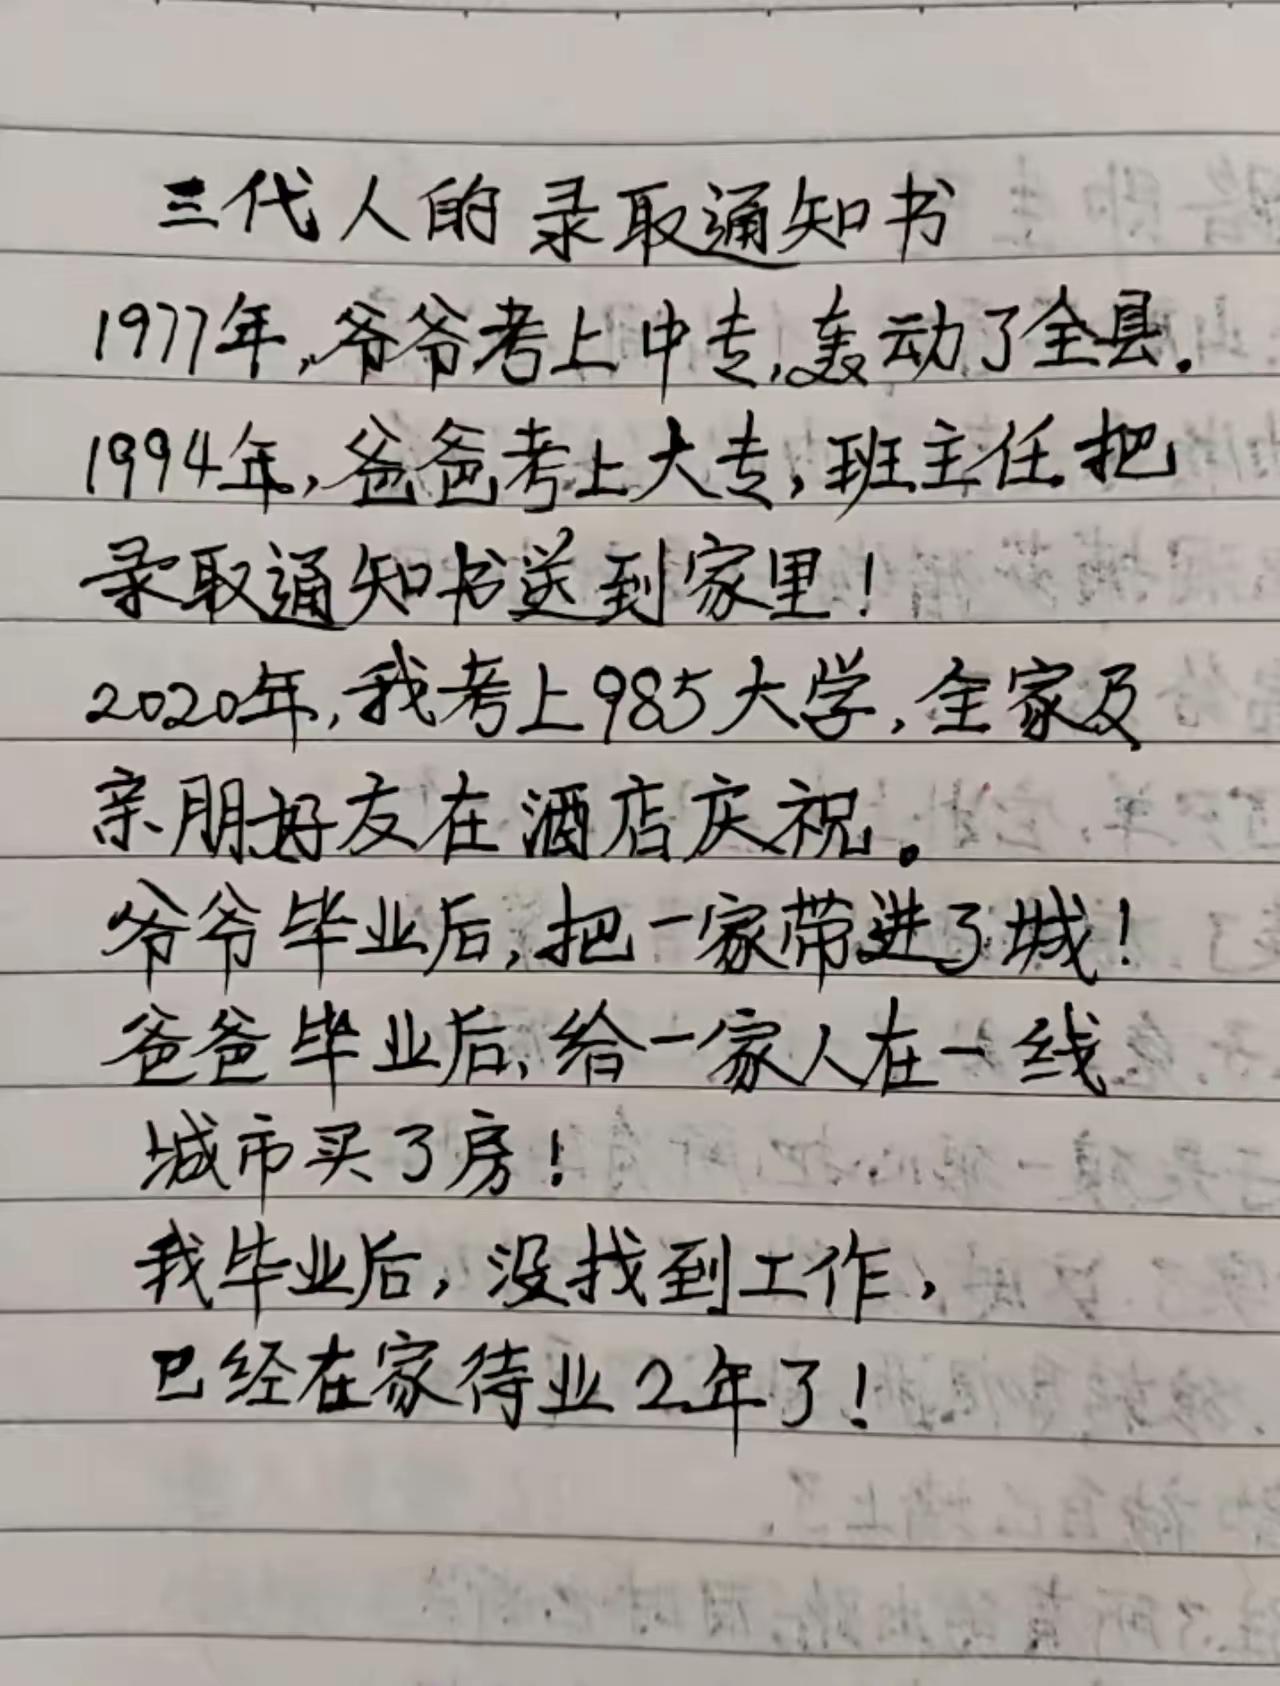 三代人的录取通知书
1977年,爷爷考上中专,轰动了全县.
1994年,爸爸考上大专,班主任把
录取通知书送到家里!
2020年,我考上985大学,全家及
亲朋好友在酒店庆祝。
爷爷毕业后,把一家带进了城!
爸爸毕业后,给一家人在一线
城市买了房!
我毕业后,没找到工作,
已经在家待业2年了!